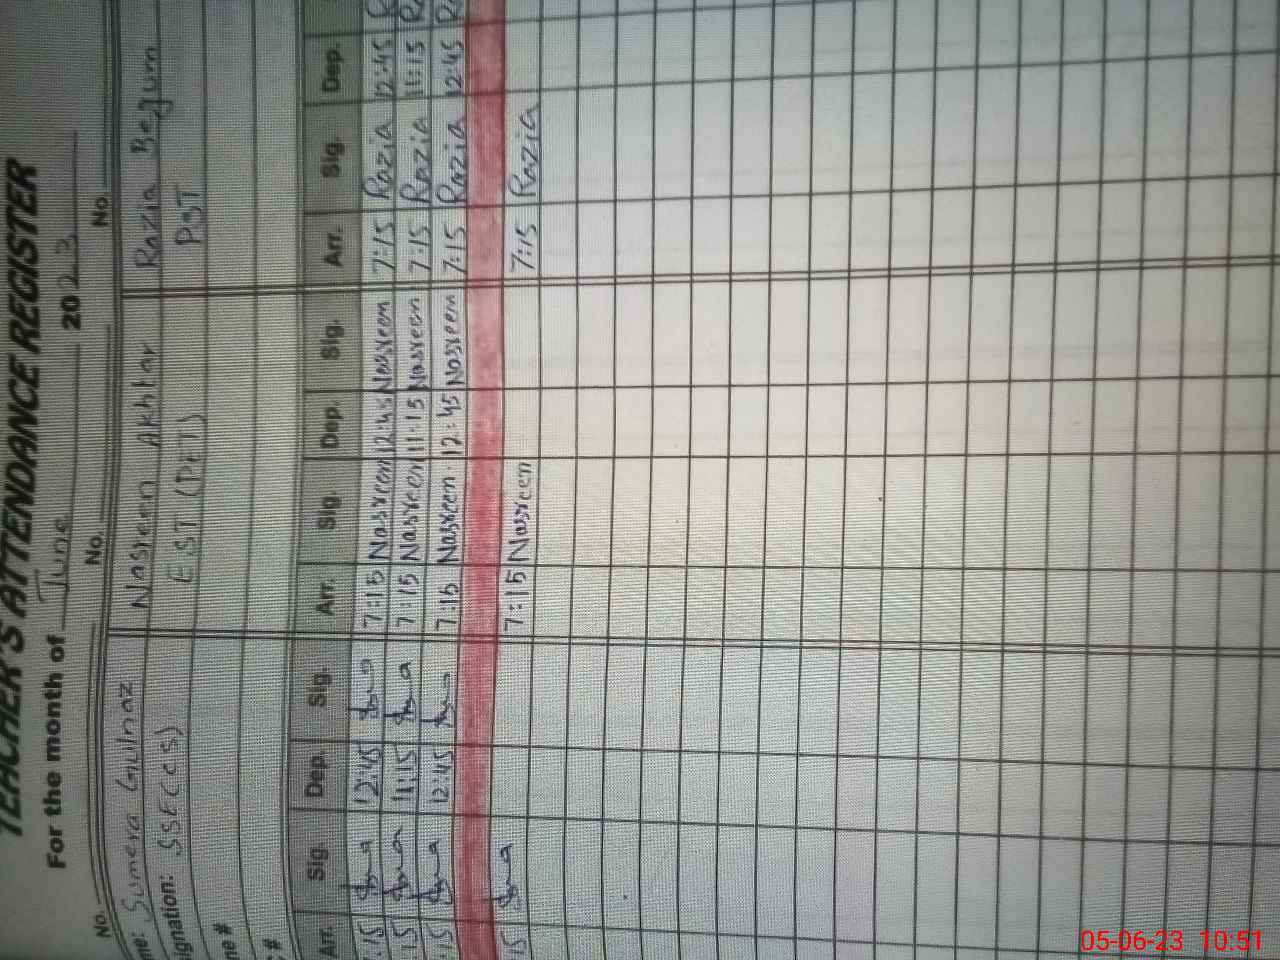 TEACHER'S ATTENDANCE REGISTER
For the month of June 2023
No. No. No.
me: Sumera Gulnaz Nasreen Akhtar Razia Begum
ignation: SSE(CS) EST (PET) PST
ne #
#
Arr. Sig. Dep. Sig. Arr. Sig. Dep. Sig. Arr. Sig. Dep.
:15 12:45 7:15 Nasreen 12:45 Nasreen 7:15 Razia 12:45 R
:15 11:15 7:15 Nasreen 11:15 Nasreen 7:15 Razia 11:15 Ra
:15 12:45 7:15 Nasreen 12:45 Nasreen 7:15 Razia 12:45 Ra
15 7:15 Nasreen 7:15 Razia
05-06-23 10:51